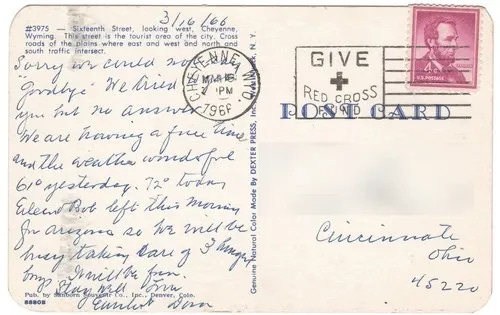 3/16/66
#3975 — Sixteenth Street, looking west, Cheyenne,
Wyming. This street is the tourist area of the city. Cross
roads of the plains where east and west and north and
south traffic intersect.
Sorry we could not
"Goodbye". We tried
you but no answer
We are having a fine time
and the weather wonderful
61° yesterday. 72° today
Bob left this morning
for arizona so we will be
busy taking care of 3
boys will be fun.
Stay well Love
Pub. by Sanborn Souvenir Co., Inc., Denver, Colo.
Genuine Natural Color Made By DEXTER PRESS, Inc. West Nyack, N. Y.
CHEYENNE, WYO.
PM
1966
GIVE
RED CROSS
FUND
U.S. POSTAGE
POST CARD
Cincinnati
Ohio
45220